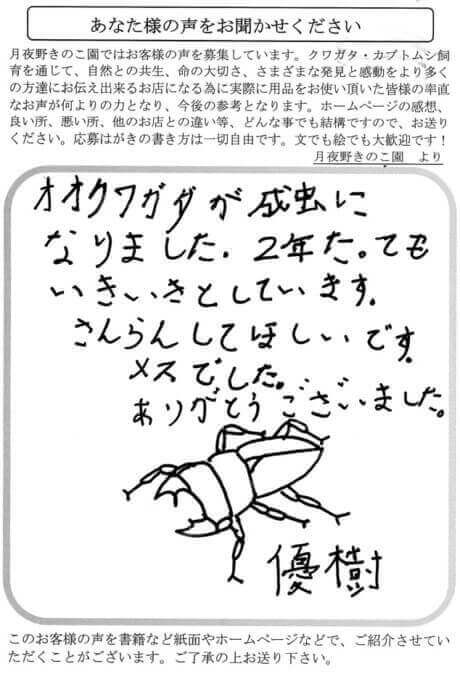 あなた様の声をお聞かせください
月夜野きのこ園ではお客様の声を募集しています。クワガタ・カブトムシ飼
育を通じて、自然との共生、命の大切さ、さまざまな発見と感動をより多く
の方達にお伝え出来るお店になる為に実際に用品をお使い頂いた皆様の率直
なお声が何よりの力となり、今後の参考となります。ホームページの感想、
良い所、悪い所、他のお店との違い等、どんな事でも結構ですので、お送り
ください。応募はがきの書き方は一切自由です。文でも絵でも大歓迎です！
月夜野きのこ園　より
オオクワガタが成虫に
なりました。2年た。ても
いきいきとしています。
さんらんしてほしいです。
メスでした。
ありがとうございました。
優樹
このお客様の声を書籍など紙面やホームページなどで、ご紹介させてい
ただくことがございます。ご了承の上お送り下さい。